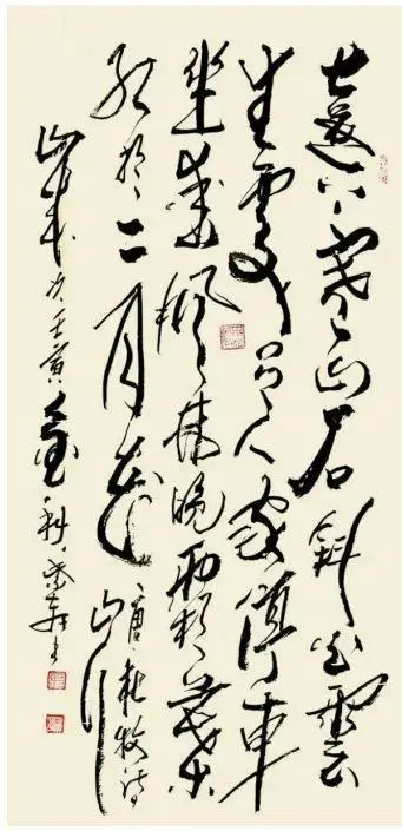 遠上寒山石斜白雲
生處有人家停車
坐愛楓林晚霜葉
紅於二月花
唐杜牧詩
山行
壬寅金秋